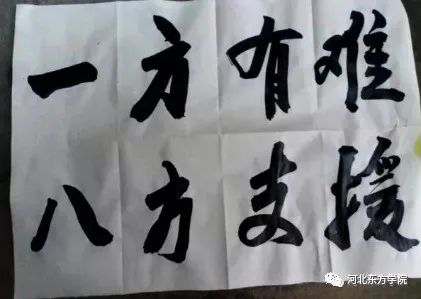 一方有难
八方支援
河北东方学院